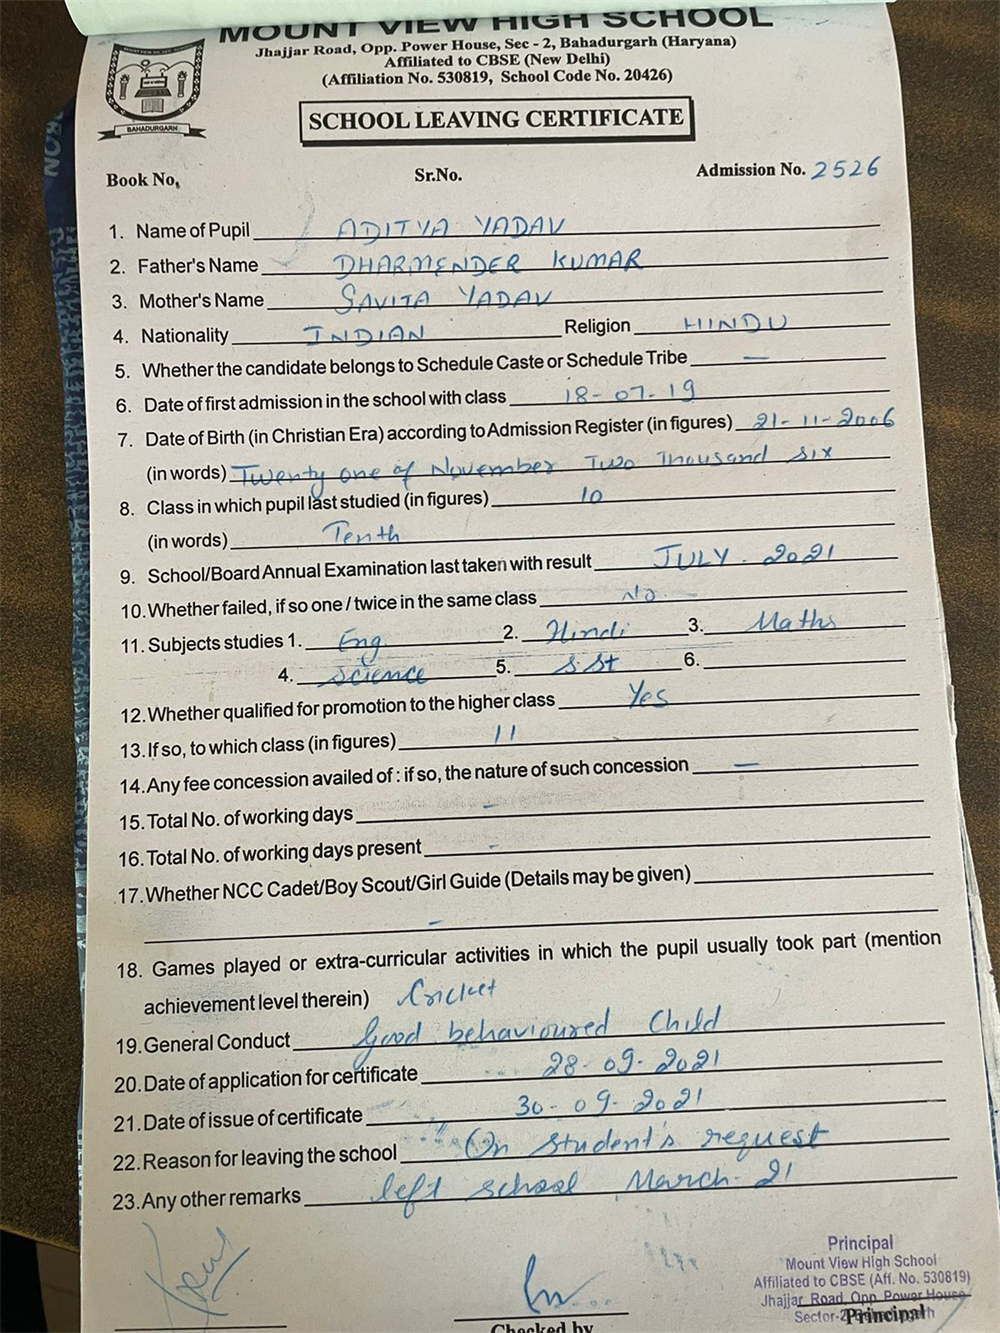 MOUNT VIEW HIGH SCHOOL
Jhajjar Road, Opp. Power House, Sec - 2, Bahadurgarh (Haryana)
Affiliated to CBSE (New Delhi)
(Affiliation No. 530819, School Code No. 20426)
BAHADURGARH
SCHOOL LEAVING CERTIFICATE
Book No, Sr.No. Admission No. 2526
1. Name of Pupil ADITYA YADAV
2. Father's Name DHARMENDER KUMAR
3. Mother's Name SAVITA YADAV
4. Nationality INDIAN Religion HINDU
5. Whether the candidate belongs to Schedule Caste or Schedule Tribe —
6. Date of first admission in the school with class 18-07-19
7. Date of Birth (in Christian Era) according to Admission Register (in figures) 21-11-2006
(in words) Twenty one of November Two Thousand six
8. Class in which pupil last studied (in figures) 10
(in words) Tenth
9. School/Board Annual Examination last taken with result JULY - 2021
10. Whether failed, if so one / twice in the same class No
11. Subjects studies 1. Eng 2. Hindi 3. Maths
4. Science 5. S.St 6.
12. Whether qualified for promotion to the higher class Yes
13. If so, to which class (in figures) 11
14. Any fee concession availed of : if so, the nature of such concession —
15. Total No. of working days -
16. Total No. of working days present -
17. Whether NCC Cadet/Boy Scout/Girl Guide (Details may be given)
-
18. Games played or extra-curricular activities in which the pupil usually took part (mention
achievement level therein) Cricket
19. General Conduct Good behavioured Child
20. Date of application for certificate 28-09-2021
21. Date of issue of certificate 30-09-2021
22. Reason for leaving the school On student's request
23. Any other remarks left school March-21
Principal
Mount View High School
Affiliated to CBSE (Aff. No. 530819)
Jhajjar Road, Opp. Power House
Sector-2
Principal
Checked by